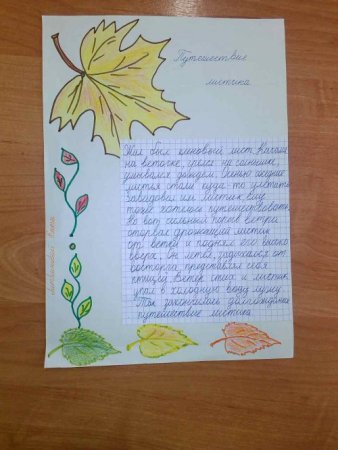 Путешествие
листика
Жил был кленовый лист. Качался
на веточке, грелся на солнышке,
умывался дождем. Осенью соседние
листья стали куда-то улетать.
Завидовал им листик, ему
тоже хотелось путешествовать.
Но вот сильный порыв ветра
оторвал дрожащий листик
от ветки и поднял его высоко
вверх. Он летел, задыхался от
восторга, представлял себя
птицей. Ветер стих и листик
упал в холодную воду лужи.
Так закончилось долгожданное
путешествие листика